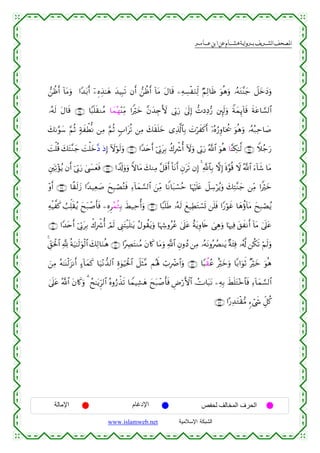 المصحف الشريف برواية هشام عن ابن عامر
وَدَخَلَ جَنَّتَهُۥ وَهُوَ ظَالِمٌ لِّنَفْسِهِۦ قَالَ مَآ أَظُنُّ أَن تَبِيدَ هَٰذِهِۦٓ أَبَدًا ۝ وَمَآ أَظُنُّ
ٱلسَّاعَةَ قَآئِمَةً وَلَئِن رُّدِدتُّ إِلَىٰ رَبِّى لَأَجِدَنَّ خَيْرًا مِّنْهُمَا مُنقَلَبًا ۝ قَالَ لَهُۥ
صَاحِبُهُۥ وَهُوَ يُحَاوِرُهُۥٓ أَكَفَرْتَ بِٱلَّذِى خَلَقَكَ مِن تُرَابٍ ثُمَّ مِن نُّطْفَةٍ ثُمَّ سَوَّىٰكَ
رَجُلًا ۝ لَّٰكِنَّا هُوَ ٱللَّهُ رَبِّى وَلَآ أُشْرِكُ بِرَبِّىٓ أَحَدًا ۝ وَلَوْلَآ إِذ دَّخَلْتَ جَنَّتَكَ قُلْتَ
مَا شَآءَ ٱللَّهُ لَا قُوَّةَ إِلَّا بِٱللَّهِ إِن تَرَنِ أَنَا۠ أَقَلَّ مِنكَ مَالًا وَوَلَدًا ۝ فَعَسَىٰ رَبِّىٓ أَن يُؤْتِيَنِ
خَيْرًا مِّن جَنَّتِكَ وَيُرْسِلَ عَلَيْهَا حُسْبَانًا مِّنَ ٱلسَّمَآءِ فَتُصْبِحَ صَعِيدًا زَلَقًا ۝ أَوْ
يُصْبِحَ مَآؤُهَا غَوْرًا فَلَن تَسْتَطِيعَ لَهُۥ طَلَبًا ۝ وَأُحِيطَ بِثُمُرِهِۦ فَأَصْبَحَ يُقَلِّبُ كَفَّيْهِ
عَلَىٰ مَآ أَنفَقَ فِيهَا وَهِىَ خَاوِيَةٌ عَلَىٰ عُرُوشِهَا وَيَقُولُ يَٰلَيْتَنِى لَمْ أُشْرِكْ بِرَبِّىٓ أَحَدًا ۝
وَلَمْ تَكُن لَّهُۥ فِئَةٌ يَنصُرُونَهُۥ مِن دُونِ ٱللَّهِ وَمَا كَانَ مُنتَصِرًا ۝ هُنَالِكَ ٱلْوَلَٰيَةُ لِلَّهِ ٱلْحَقِّ
هُوَ خَيْرٌ ثَوَابًا وَخَيْرٌ عُقُبًا ۝ وَٱضْرِبْ لَهُم مَّثَلَ ٱلْحَيَوٰةِ ٱلدُّنْيَا كَمَآءٍ أَنزَلْنَٰهُ مِنَ
ٱلسَّمَآءِ فَٱخْتَلَطَ بِهِۦ نَبَاتُ ٱلْأَرْضِ فَأَصْبَحَ هَشِيمًا تَذْرُوهُ ٱلرِّيَٰحُ وَكَانَ ٱللَّهُ عَلَىٰ
كُلِّ شَىْءٍ مُّقْتَدِرًا ۝
الحرف المخالف لحفص الإدغام الإمالة
الشبكة الإسلامية www.islamweb.net